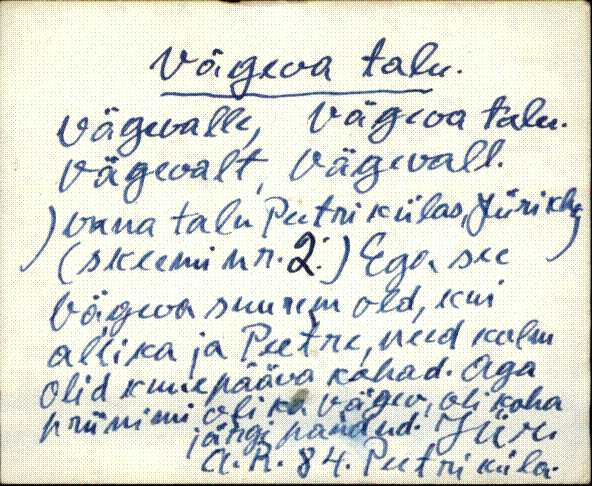 Vägeva talu.
Vägevalle, Vägeva talu.
Vägevalt, Vägevall.
) vana talu Peetri külas, Jüri khk
(skeemi nr. 2.) Ega see )
Vägeva suurem old, kui
allika ja Peetre, need kolm
olid kuuepääva kohad. Aga
priinimi oli ka Vägev, oli koha
järgi pandud. Jüri
A.R. 84. Peetri küla.